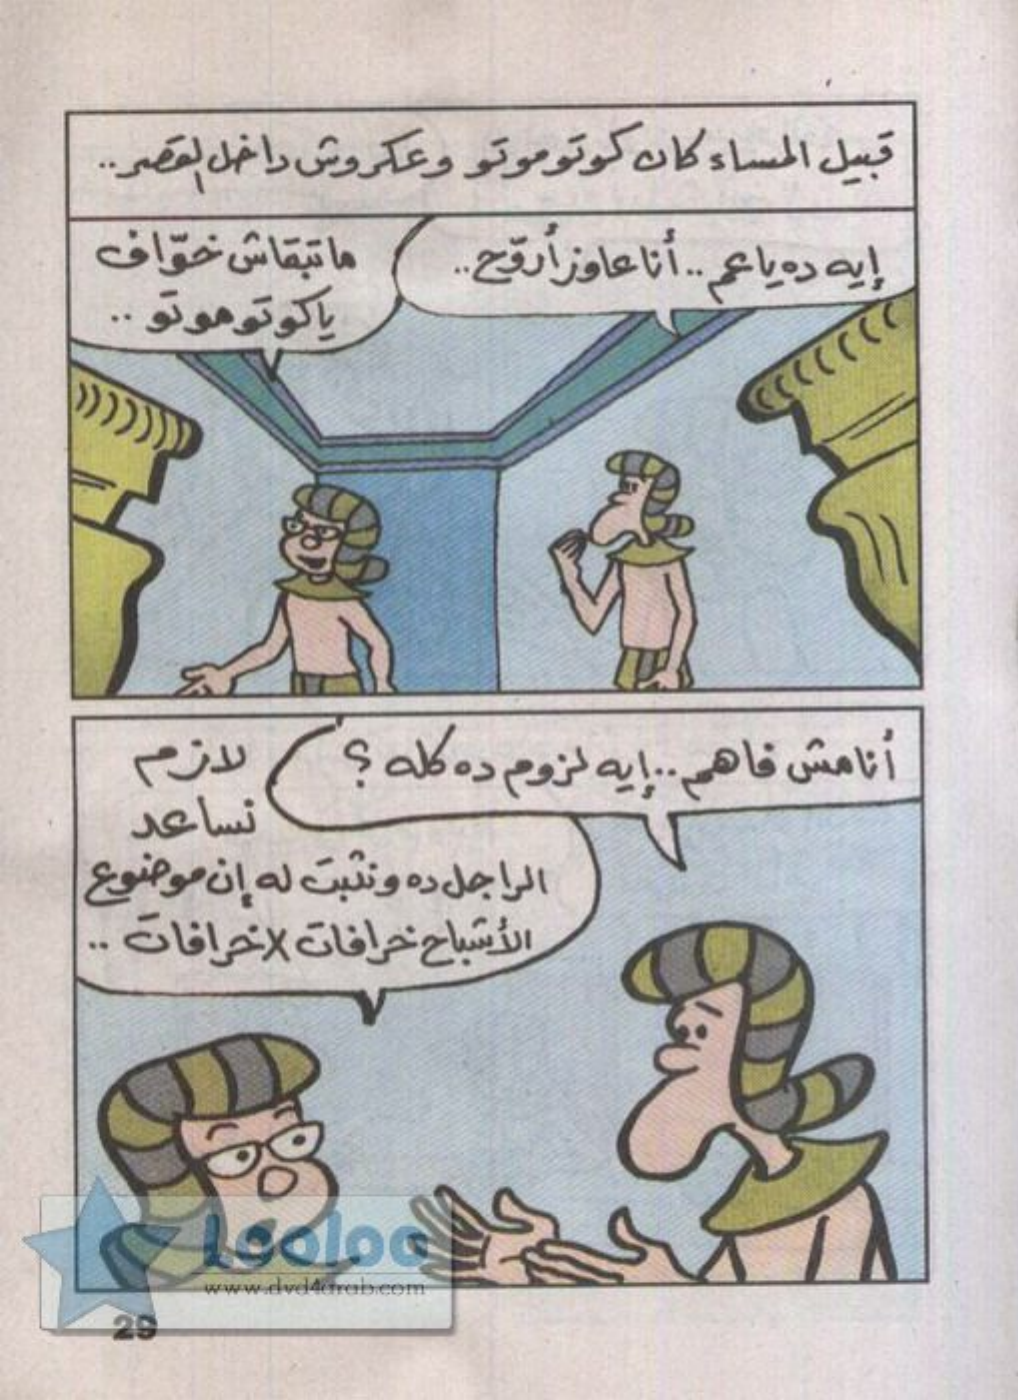 قبيل المساء كان كوتوموتو وعكروش داخل القصر..
إيه ده ياعم.. أنا عاوز أروّح..
ماتبقاش خوّاف
ياكوتوموتو..
أنا مش فاهم.. إيه لزوم ده كله؟
لازم
نساعد
الراجل ده ونثبت له إن موضوع
الأشباح خرافات X خرافات..
Looloo
www.dvd4arab.com
29